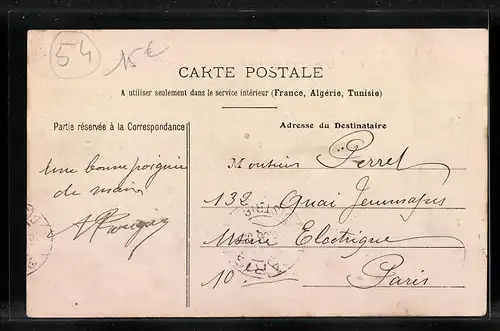 54
15€
CARTE POSTALE
A utiliser seulement dans le service intérieur (France, Algérie, Tunisie)
Partie réservée à la Correspondance
Adresse du Destinataire
Une bonne poignée
de main
Monsieur Perret
132 Quai Jemmapes
Usine Electrique
10 Paris